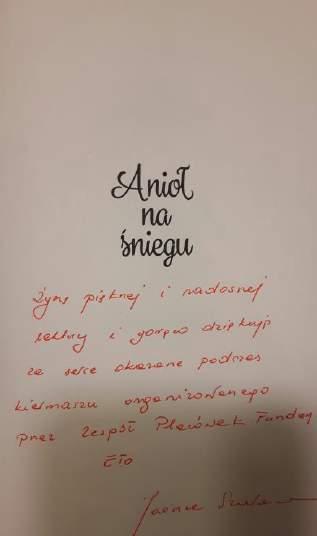 Anioł
na
śniegu
Życzę pięknej i radosnej
lektury i gorąco dziękuję
za serce okazane podczas
kiermaszu organizowanego
przez Zespół Placówek Fundacji
Elo
Joanna